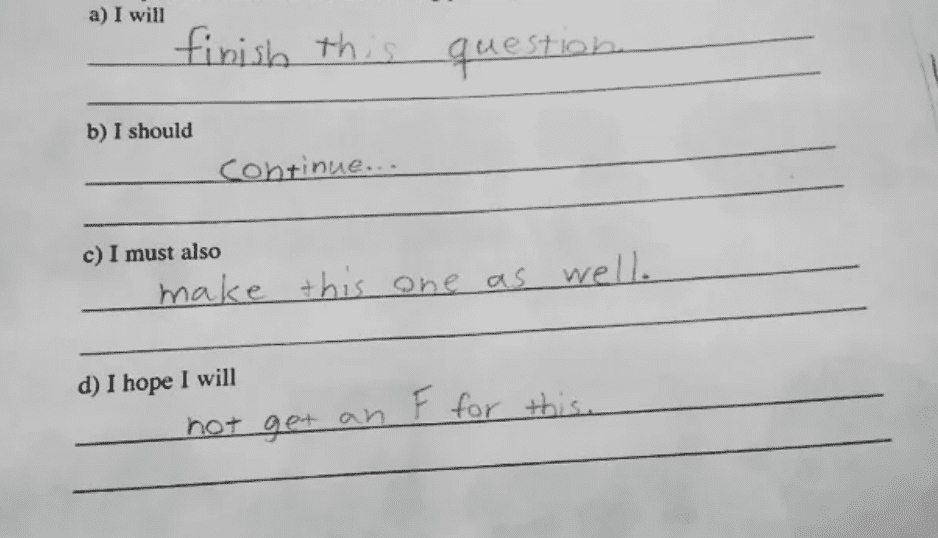 a) I will
finish this question.
b) I should
continue...
c) I must also
make this one as well.
d) I hope I will
not get an F for this.